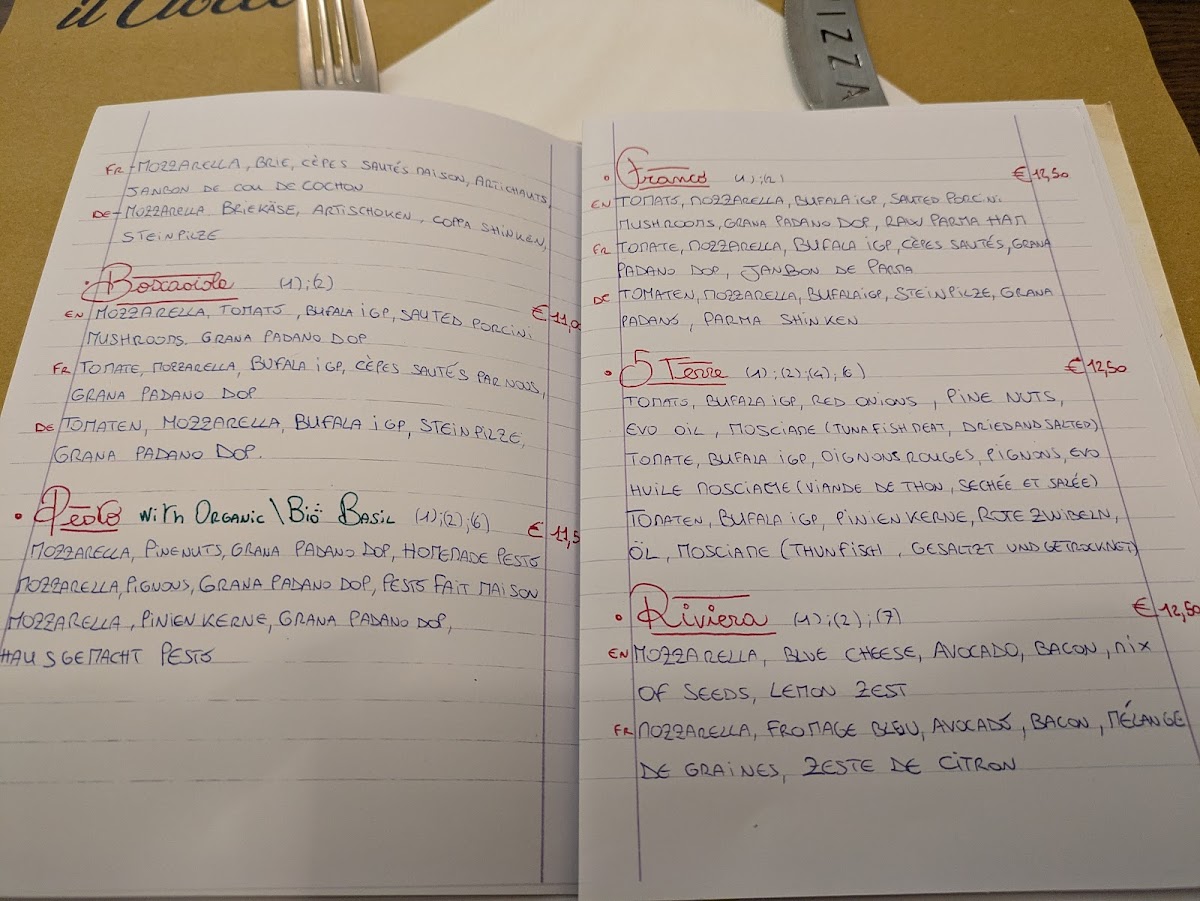 il
PIZZA
FR - MOZZARELLA, BRIE, CÈPES SAUTÉS MAISON, ARTICHAUTS,
JANBON DE COU DE COCHON
DE - MOZZARELLA BRIEKÄSE, ARTISCHOKEN, COPPA SHINKEN,
STEINPILZE
• Boscaiola (1);(2)
€ 11,00
EN MOZZARELLA, TOMATS, BUFALA iGP, SAUTED PORCINI
MUSHROOMS, GRANA PADANO DOP
FR TOMATE, MOZZARELLA, BUFALA iGP, CÈPES SAUTÉS PAR NOUS,
GRANA PADANO DOP
DE TOMATEN, MOZZARELLA, BUFALA iGP, STEINPILZE,
GRANA PADANO DOP.
• Pesto WITH ORGANIC \ BIO BASIL (1);(2);6) € 11,5
MOZZARELLA, PINENUTS, GRANA PADANO DOP, HOMEMADE PESTO
MOZZARELLA, PIGNOUS, GRANA PADANO DOP, PESTO FAIT MAISON
MOZZARELLA, PINIEN KERNE, GRANA PADANO DOP,
HAUSGEMACHT PESTO
• Franco (1);(2) € 12,50
EN TOMATS, MOZZARELLA, BUFALA iGP, SAUTED PORCINI
MUSHROOMS, GRANA PADANO DOP, RAW PARMA HAM
FR TOMATE, MOZZARELLA, BUFALA IGP, CÈPES SAUTÉS, GRANA
PADANO DOP, JANBON DE PARMA
DE TOMATEN, MOZZARELLA, BUFALA iGP, STEINPILZE, GRANA
PADANO, PARMA SHINKEN
• 5 Terre (1);(2);(4);6) € 12,50
TOMATS, BUFALA iGP, RED ONIONS, PINE NUTS,
EVO OIL, MOSCIAME (TUNA FISH MEAT, DRIED AND SALTED)
TOMATE, BUFALA iGP, OIGNONS ROUGES, PIGNONS, EVO
HUILE MOSCIAME (VIANDE DE THON, SECHÉE ET SALÉE)
TOMATEN, BUFALA iGP, PINIEN KERNE, ROTE ZWIBELN,
ÖL, MOSCIAME (THUNFISCH, GESALTZT UND GETROCKNET)
• Riviera (1);(2);(7) € 12,50
EN MOZZARELLA, BLUE CHEESE, AVOCADO, BACON, MIX
OF SEEDS, LEMON ZEST
FR MOZZARELLA, FROMAGE BLEU, AVOCADO, BACON, MÉLANGE
DE GRAINES, ZESTE DE CITRON